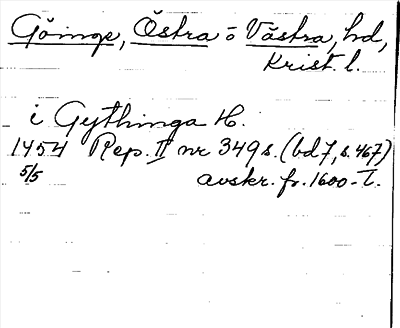 Göinge, Östra o Västra, hd,
Krist. l.
i Gythinga H.
1454 Rep. II nr 349 s. (bd 7, s. 467)
5/5 avskr. fr. 1600-t.